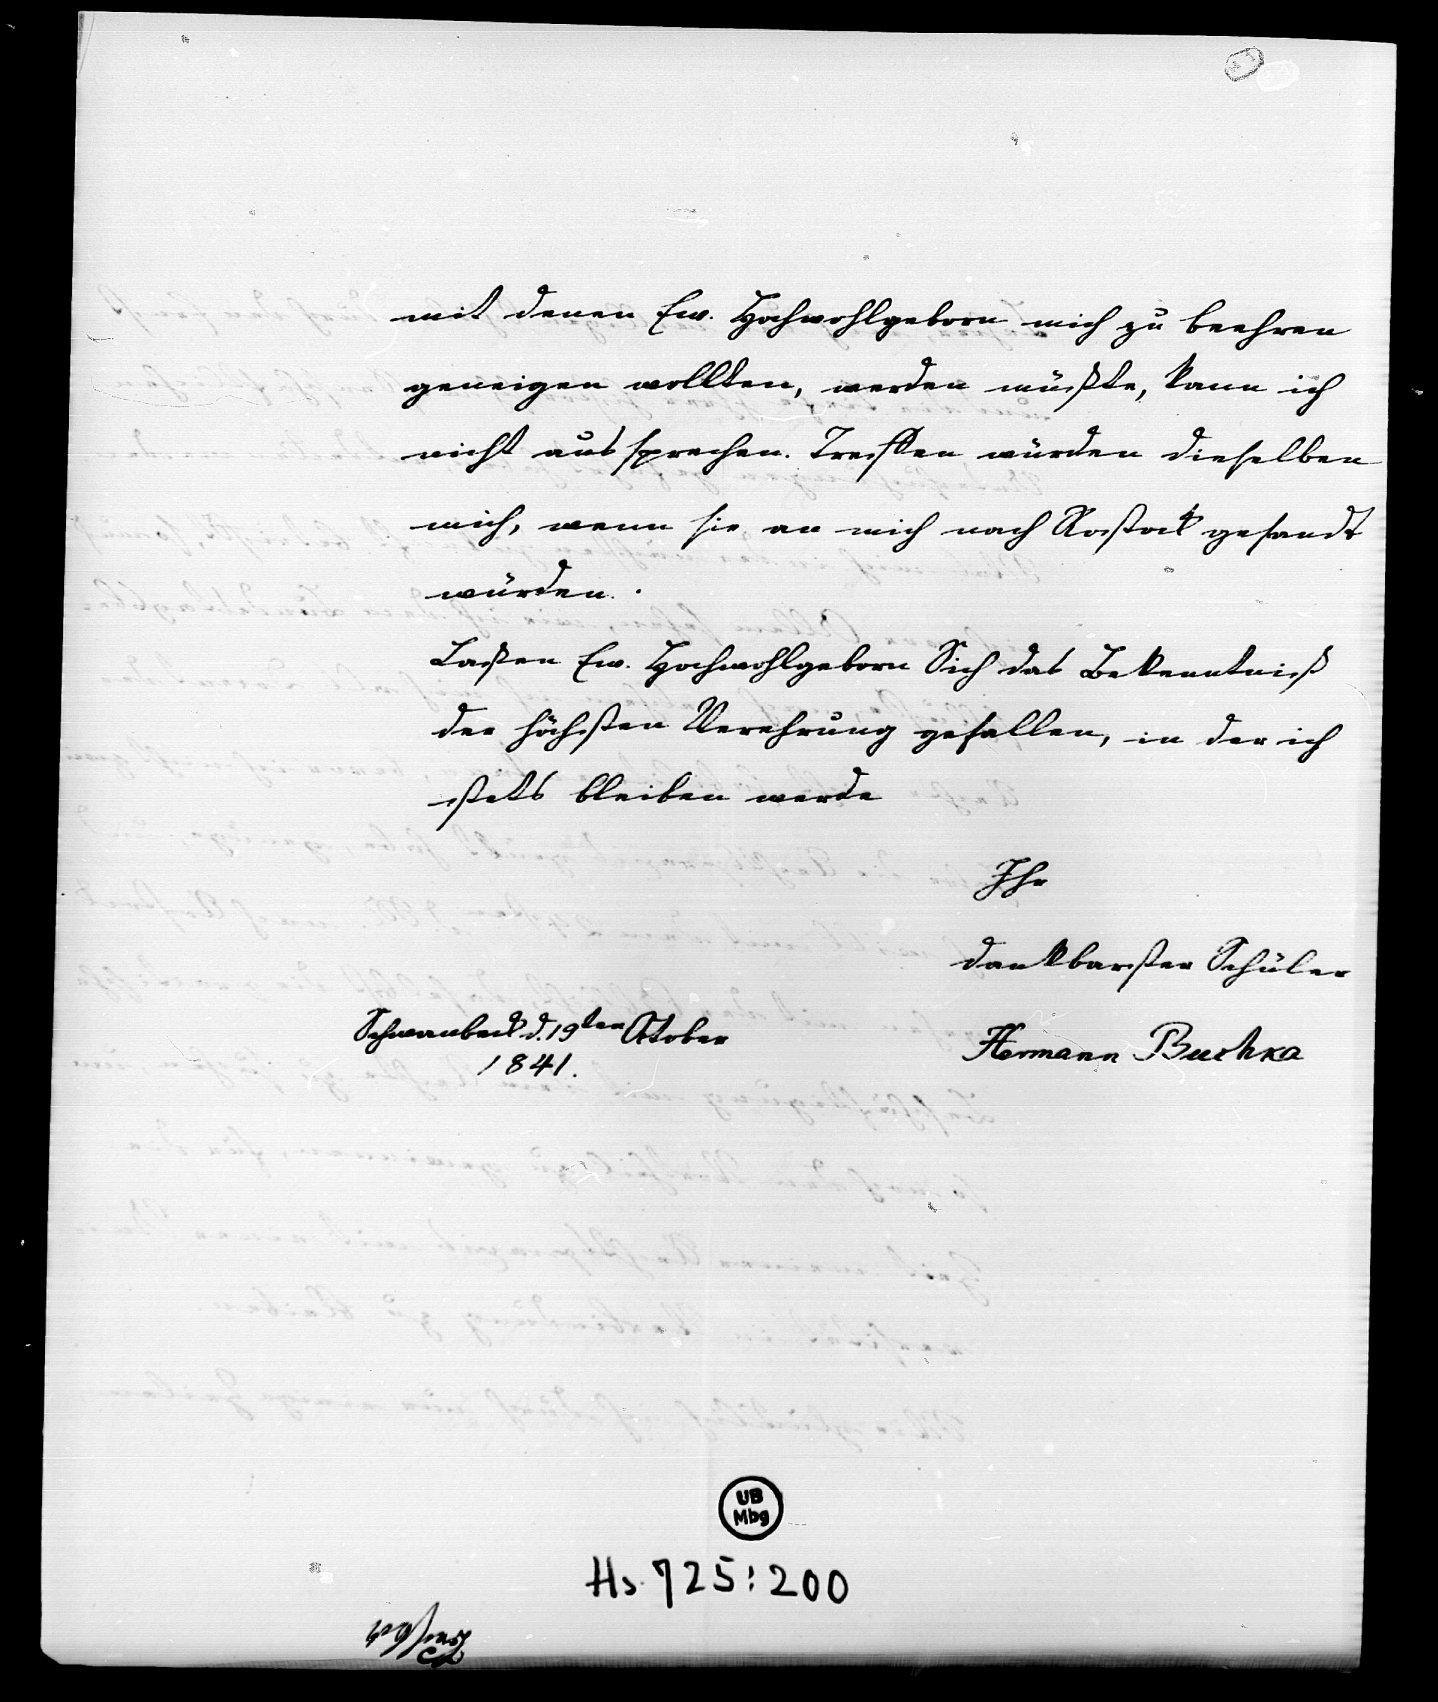 mit denen Ew. Hochwohlgeborn mich zu beehren
geneigen wollten, werden müßte, kann ich
nicht aussprechen. Treffen würden dieselben
mich, wenn sie an mich nach Rostock gesandt
würden.
Laßen Ew. Hochwohlgeborn Sich das Bekenntniß
der höchsten Verehrung gefallen, in der ich
stets bleiben werde
Ihr
dankbarster Schüler
Hermann Buchka
Schwanbeck d. 19ten October
1841.
UB
Mbg
Hs. 725:200